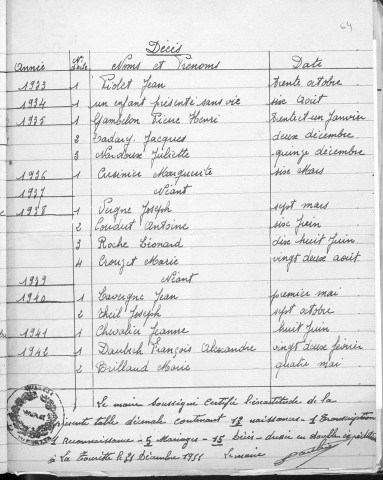 64
Décis
Année N° d'acte Noms et Prenoms Date
1933 1 Piolet Jean trente octobre
1934 1 un enfant présenté sans vie six Août
1935 1 Gambelon Pierre Henri trente et un Janvier
2 Cadary Jacques deux décembre
3 Nardoux Juliette quinze décembre
1936 1 Cuisinier Marguerite six Mars
1937 Néant
1938 1 Vergne Joseph sept mars
2 Coudert Antoine six Juin
3 Roche Léonard dix huit Juin
4 Crouzet Marie vingt deux août
1939 Néant
1940 1 Lavergne Jean premier mai
2 Theil Joseph sept octobre
1941 1 Chevalier Jeanne huit Juin
1942 1 Daubech François Alexandre vingt deux février
2 Brilland Marie quatre mai
Le maire soussigné certifie l'exactitude de la
présente table décennale contenant 12 naissances - 1 Transcription
1 Reconnaissance - 5 Mariages - 15 Décès - dressée en double expédition
à La Tourette le 31 Décembre 19 Le maire